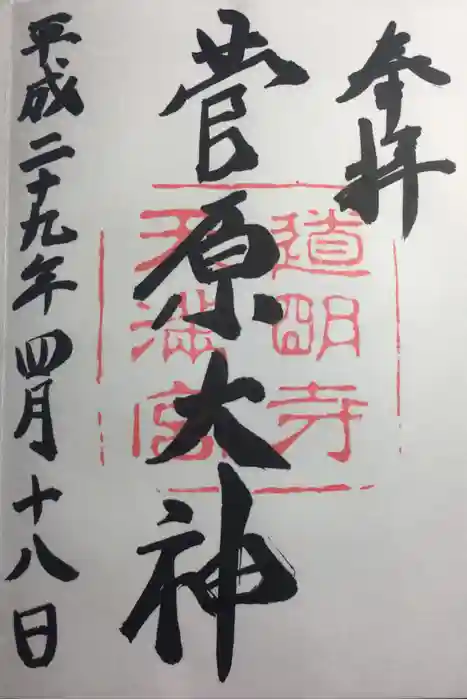 奉拝
道明寺
天満宮
菅原大神
平成二十九年四月十八日